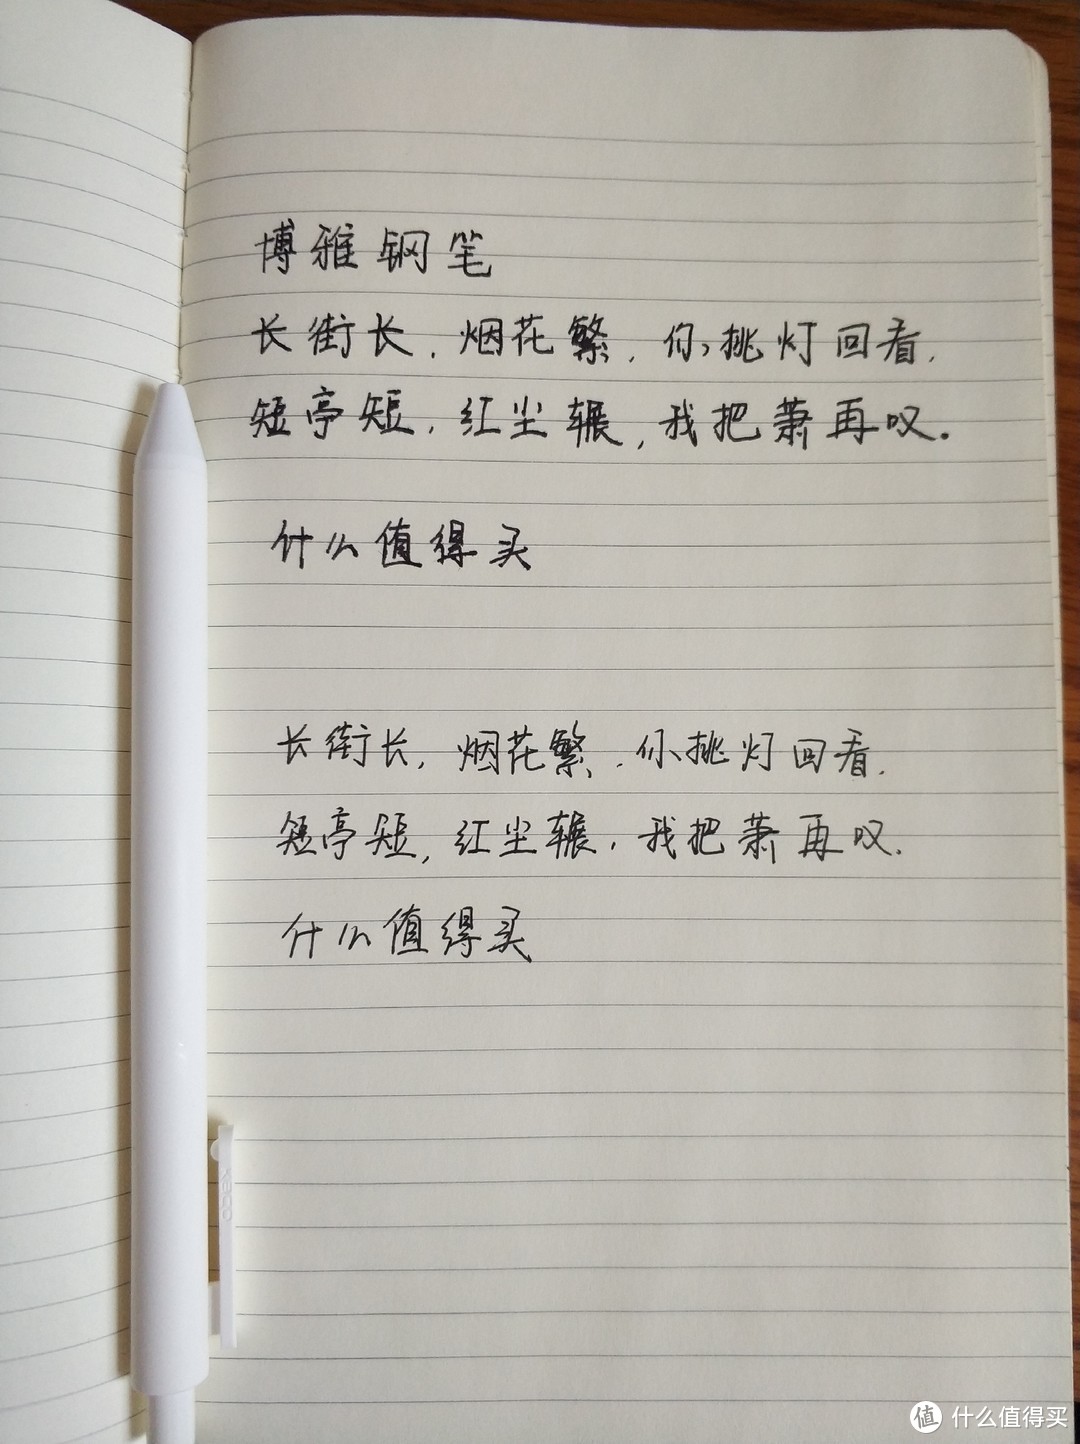 博雅钢笔
长街长,烟花繁,你挑灯回看,
短亭短,红尘辗,我把萧再叹。
什么值得买
长街长,烟花繁,你挑灯回看,
短亭短,红尘辗,我把萧再叹.
什么值得买
KACO
值 什么值得买